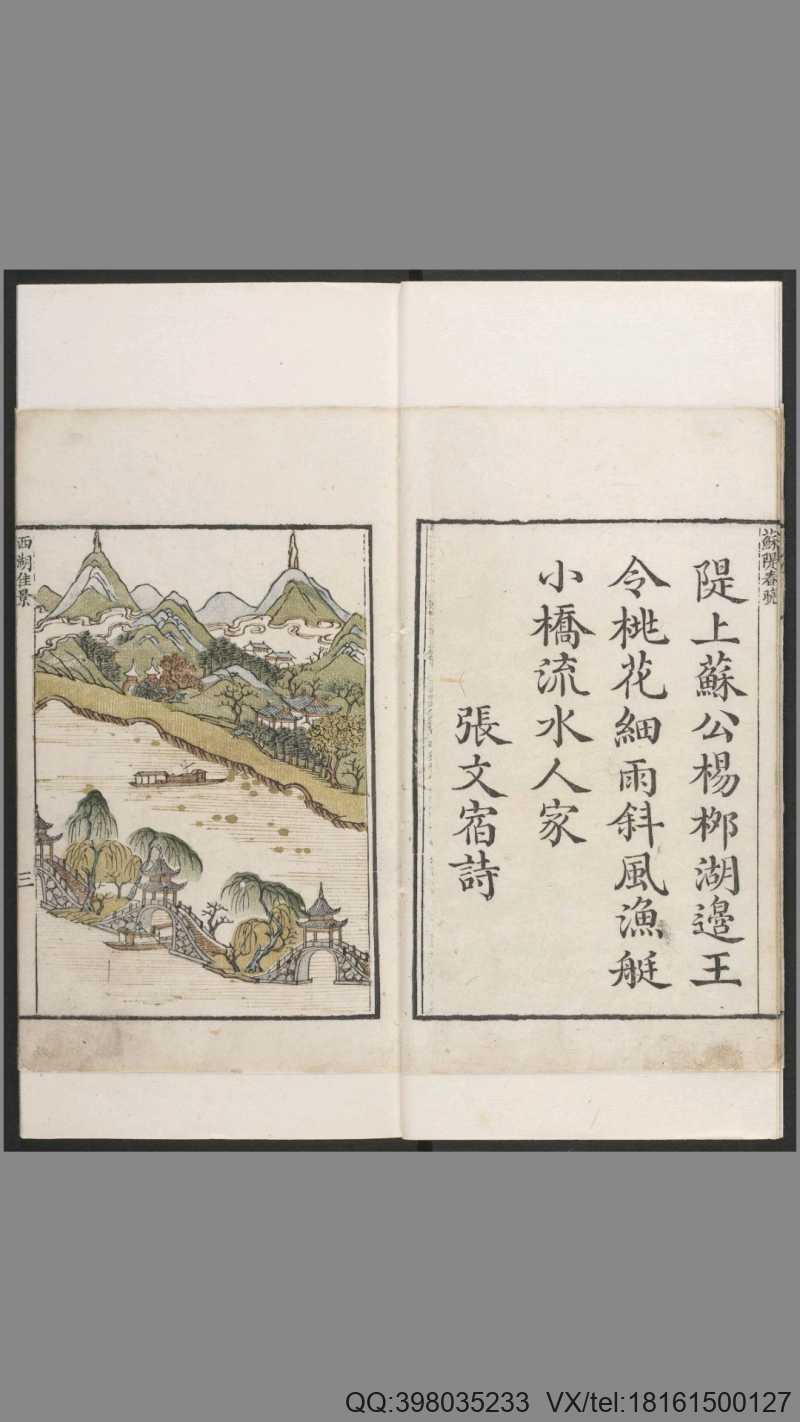 蘇隄春曉
隄上蘇公楊桺湖邉王
令桃花細雨斜風漁艇
小橋流水人家
張文宿詩
西湖佳景
三
QQ:398035233 VX/tel:18161500127